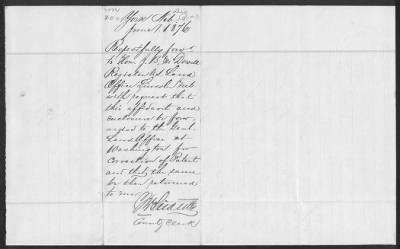 York Neb
June 1, 1876
Respectfully forwd
to Hon. J. B. Mc Dowell
Register U.S. Land
Office Lincoln Neb
with request that
this affidavit and
enclosure be forw
arded to the Genl
Land Office at
Washington for
correction of Patent
and that the same
be then returned
to me
County Clerk